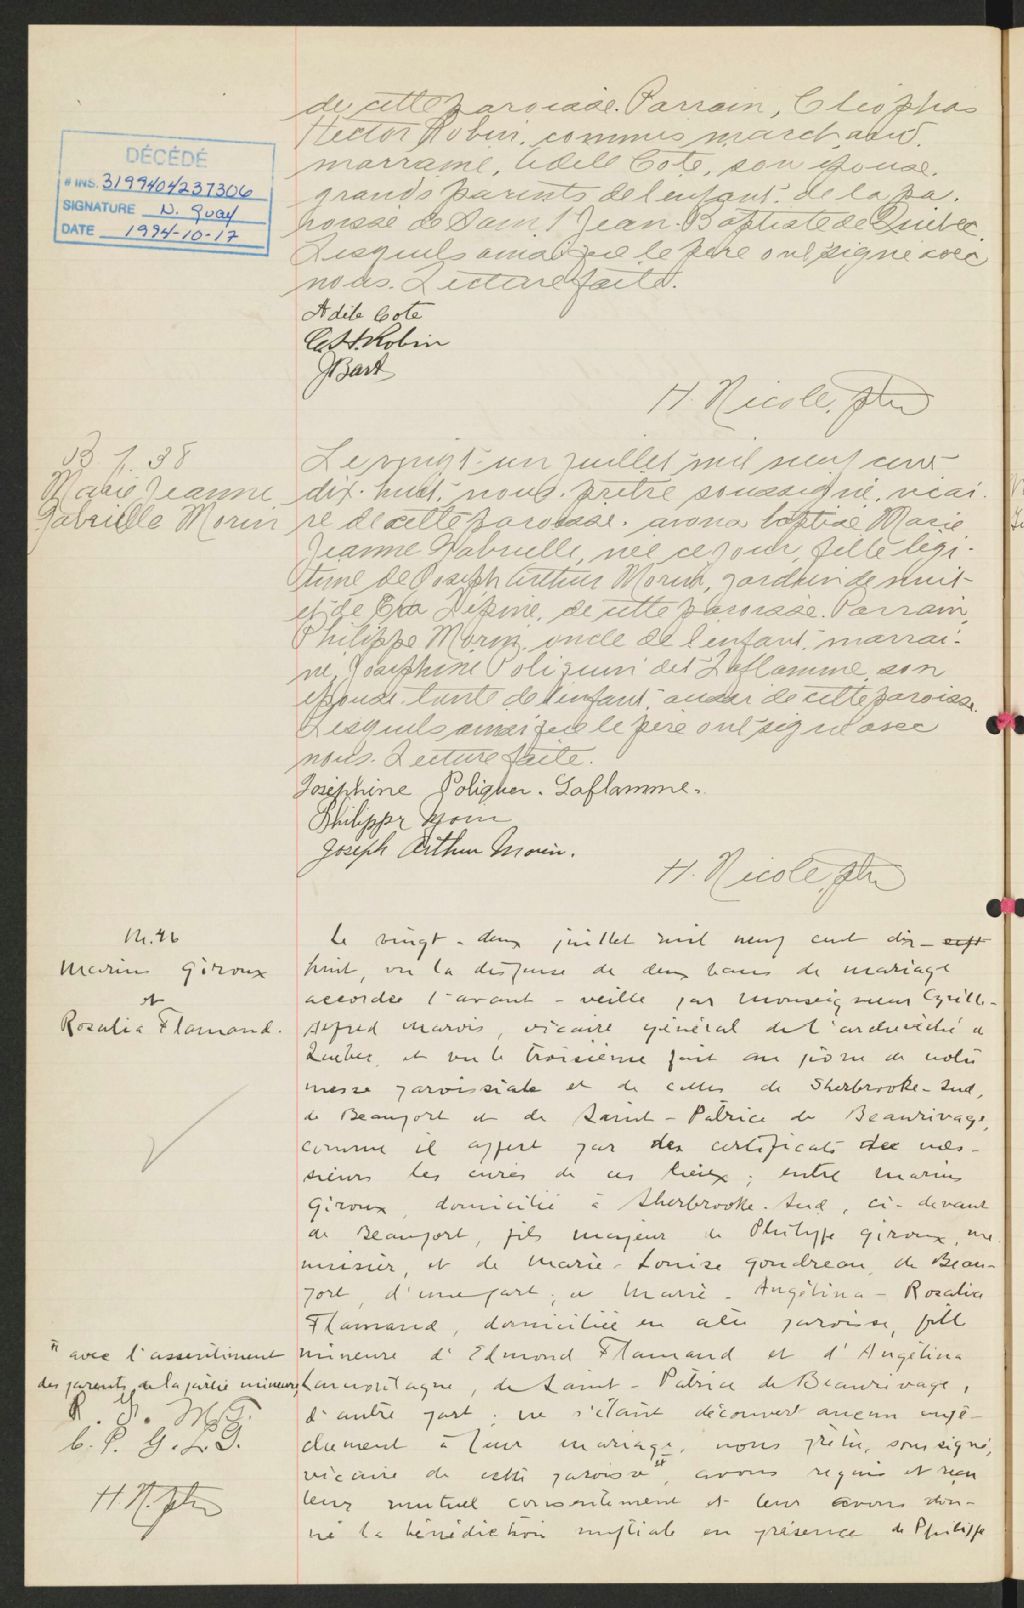 de cette paroisse. Parrain, Cléophas
Hector Robin, commis marchand,
marraine, Adèle Cote, son épouse,
grands parents de l'enfant, de la pa-
roisse de Saint Jean-Baptiste de Québec.
Lesquels ainsi que le père ont signé avec
nous. Lecture faite.
Adèle Cote
C. H. Robin
J Bart
H. Nicole, ptre
DÉCÉDÉ
# INS. 3199404237306
SIGNATURE N. Guay
DATE 1994-10-17
B. 38
Marie Jeanne
Gabrielle Morin
Le vingt-un juillet mil neuf cent
dix-huit, nous, prêtre soussigné, vicai-
re de cette paroisse, avons baptisé Marie
Jeanne Gabrielle, née ce jour, fille légi-
time de Joseph Arthur Morin, gardien de nuit
et de Eva Lépine, de cette paroisse. Parrain,
Philippe Morin, oncle de l'enfant, marrai-
ne, Joséphine Poliquin dit Laflamme, son
épouse, tante de l'enfant, aussi de cette paroisse.
Lesquels ainsi que le père ont signé avec
nous. Lecture faite.
Joséphine Poliquen. Laflamme.
Philippe Morin
Joseph Arthur Morin.
H. Nicole, ptre
M. 46
Marius Giroux
et
Rosalia Flamand.
Le vingt-deux juillet mil neuf cent dix-sept
huit, vu la dispense de deux bans de mariage
accordée l'avant-veille par Monseigneur Cyrille-
Alfred Marois, vicaire général de l'archevêché de
Québec, et vu le troisième fait au prône de notre
messe paroissiale et de celles de Sherbrooke-Sud,
de Beauport et de Saint-Patrice de Beaurivage,
comme il appert par des certificats de mes-
sieurs les curés de ces lieux; entre Marius
Giroux, domicilié à Sherbrooke-Sud, ci-devant
de Beauport, fils majeur de Philippe Giroux, me-
nuisier, et de Marie-Louise Goudreau, de Beau-
port, d'une part; et Marie-Angélina-Rosalia
Flamand, domiciliée en cette paroisse, fille
mineure d'Edmond Flamand et d'Angélina
Lamontagne, de Saint-Patrice de Beaurivage,
d'autre part; ne s'étant découvert aucun empê-
chement à leur mariage, nous prêtre, soussigné,
vicaire de cette paroisse", avons requis et reçu
leur mutuel consentement et leur avons don-
né la bénédiction nuptiale en présence de Philippe
" avec l'assentiment
des parents de la partie mineure,
R. F. M. G.
C. P. G. L. G.
H. N. ptre